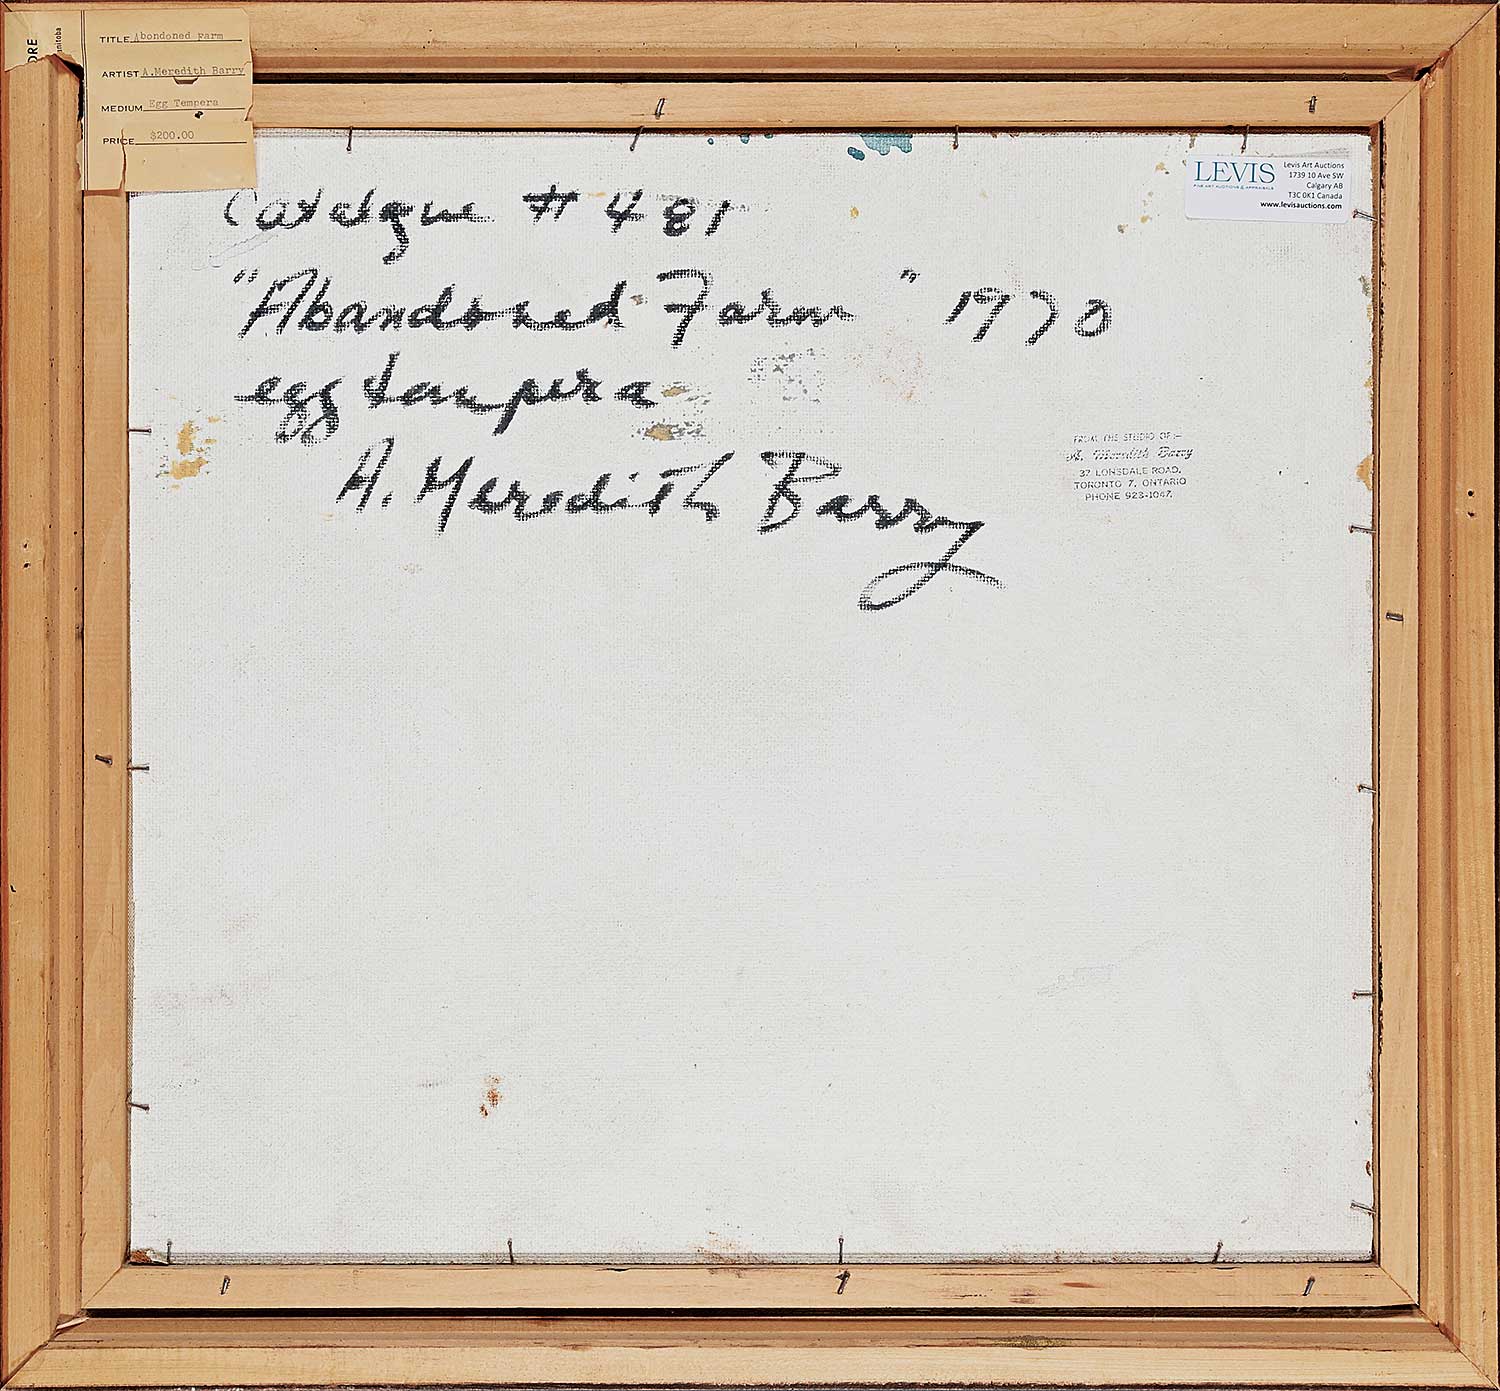 TITLE Abondoned Farm
ARTIST A.Meredith Barry
MEDIUM Egg Tempera
PRICE $200.00
LEVIS
FINE ART AUCTIONS & APPRAISALS
Levis Art Auctions
1739 10 Ave SW
Calgary AB
T3C 0K1 Canada
www.levisauctions.com
Catalogue # 481
"Abandoned Farm" 1970
egg tempera
A. Meredith Barry
FROM THE STUDIO OF:-
A. Meredith Barry
37 LONSDALE ROAD.
TORONTO 7, ONTARIO
PHONE 923-1047.